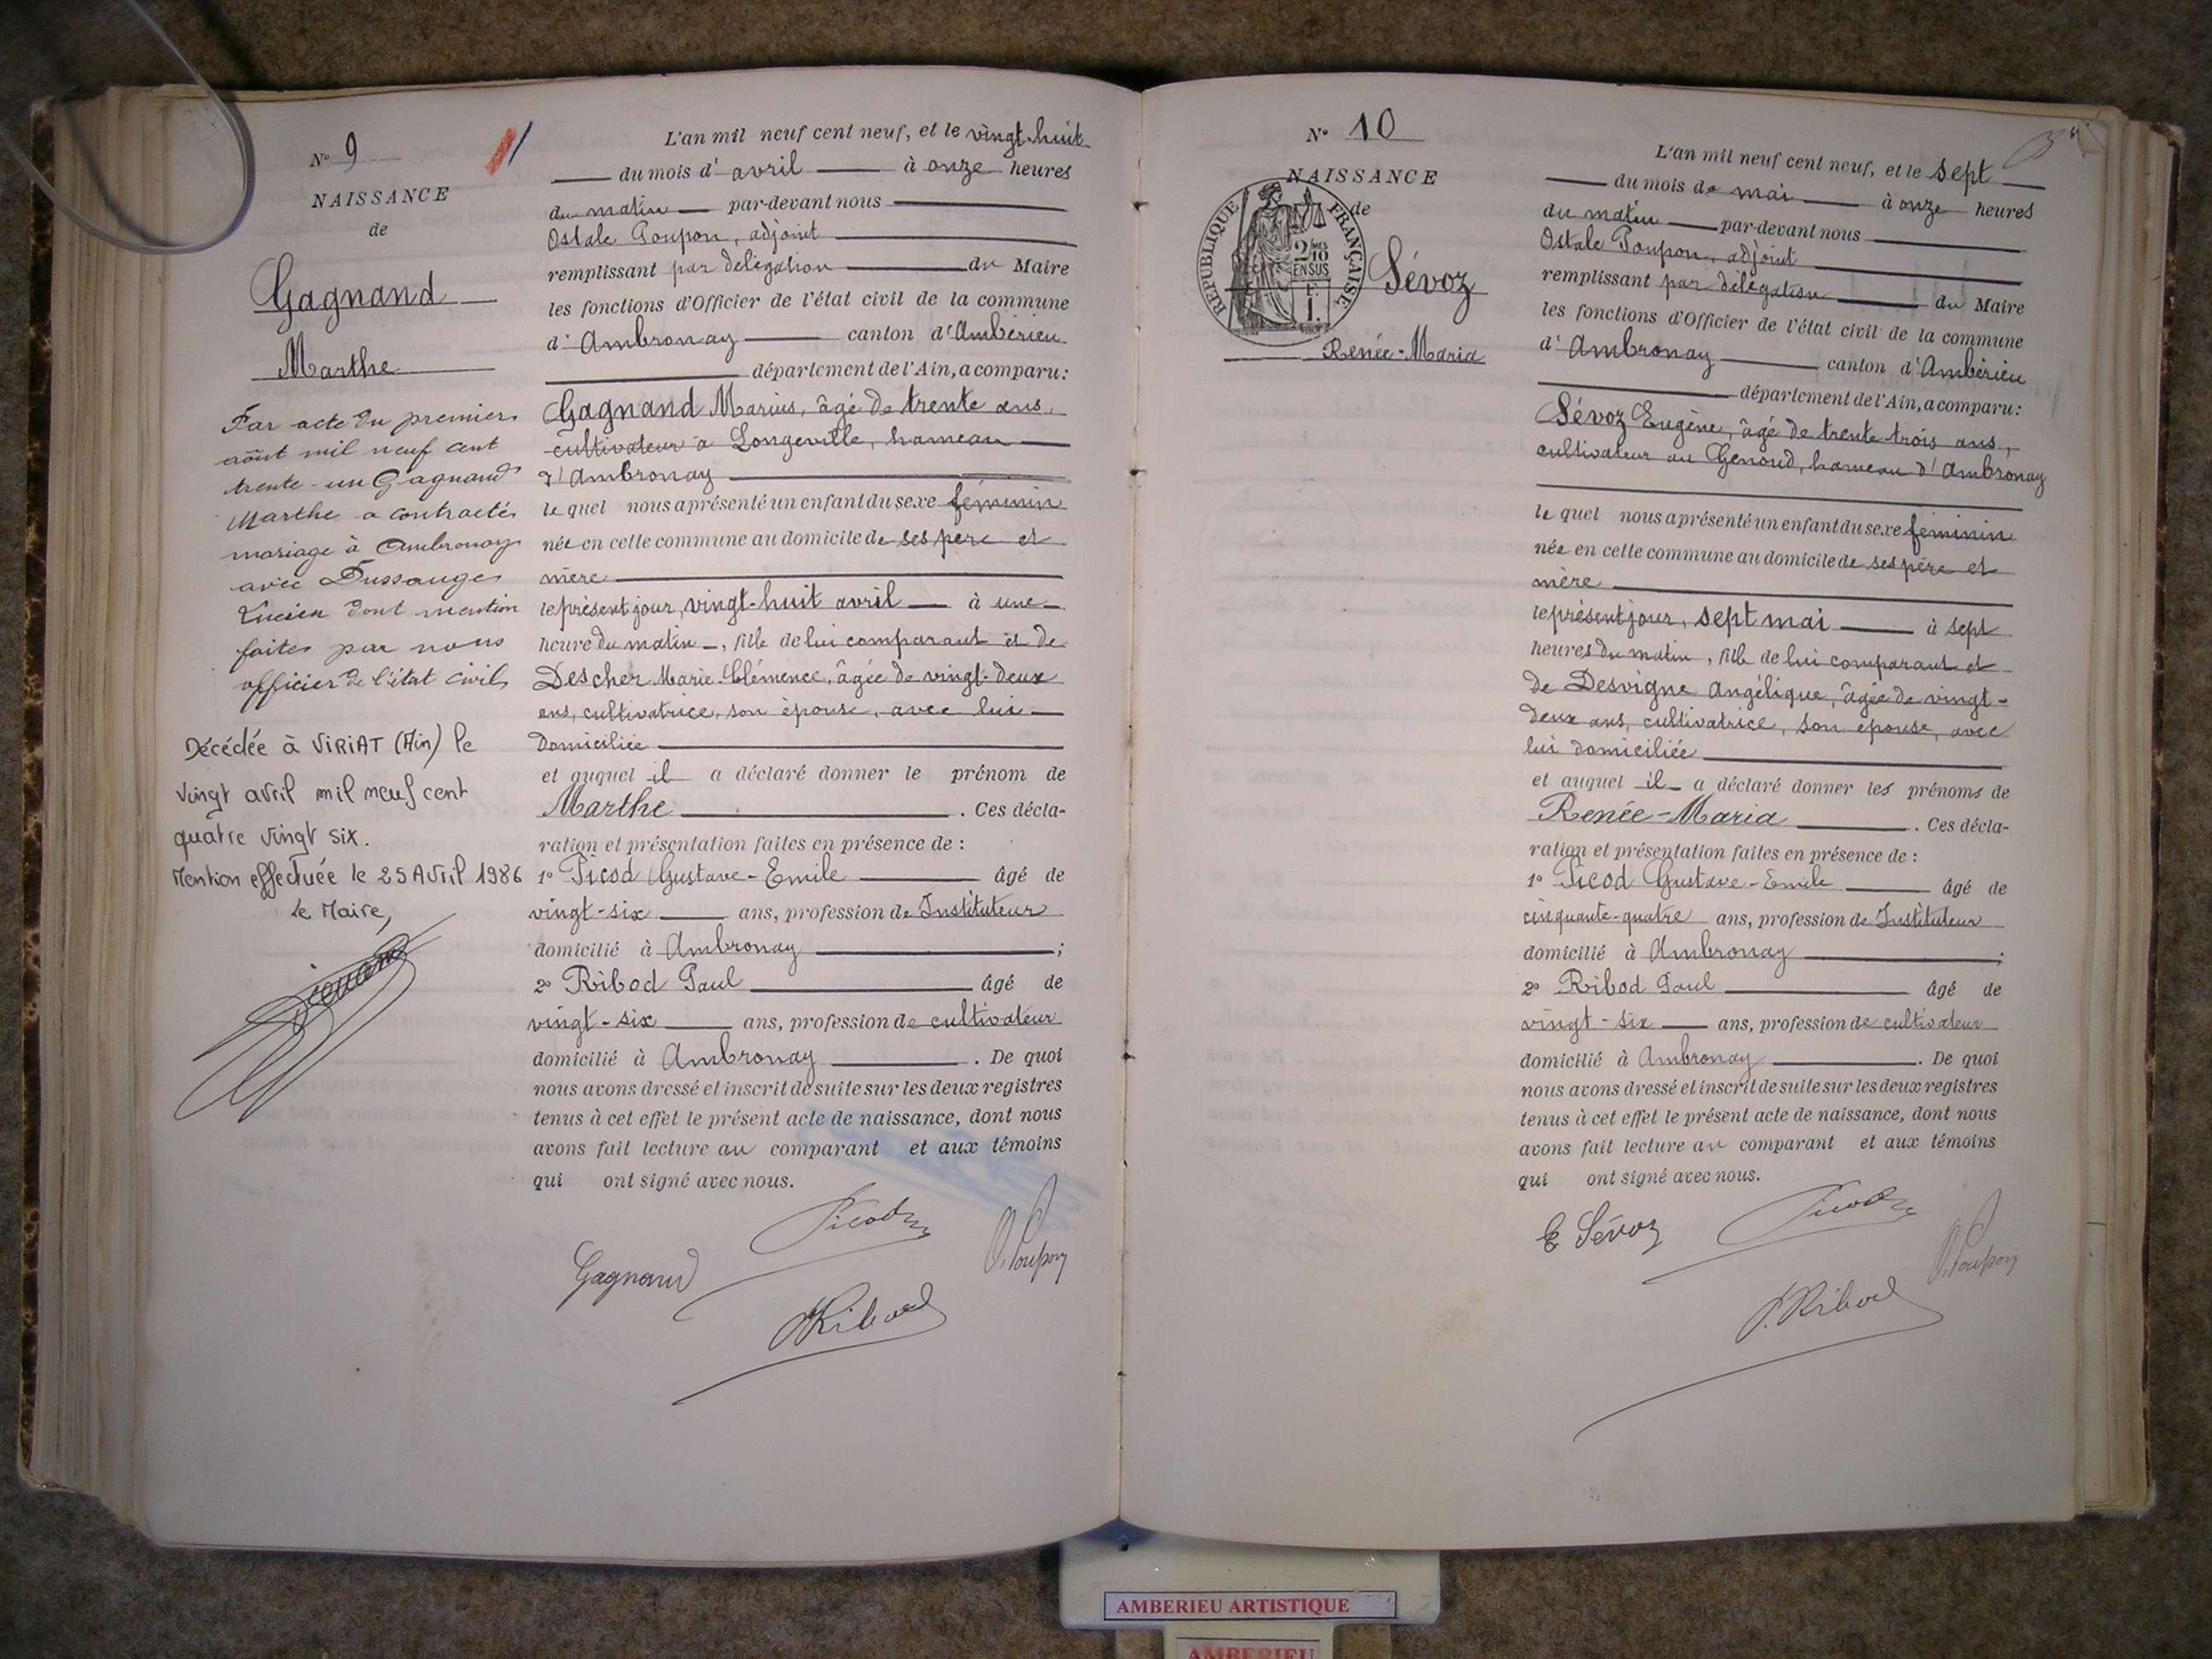 N° 9
NAISSANCE
de
Gagnand
Marthe
Par acte du premier
août mil neuf cent
trente-un Gagnand
Marthe a contracté
mariage à Ambronay
avec Dussauge
Lucien dont mention
faite par nous
officier de l'état civil
Décédée à VIRIAT (Ain) le
vingt avril mil neuf cent
quatre vingt six.
Mention effectuée le 25 Avril 1986
Le Maire,
L'an mil neuf cent neuf, et le vingt-huit
du mois d'avril à onze heures
du matin par-devant nous
Ostale Poupon, adjoint
remplissant par délégation du Maire
les fonctions d'Officier de l'état civil de la commune
d'Ambronay canton d'Ambérieu
département de l'Ain, a comparu:
Gagnand Marius, âgé de trente ans,
cultivateur à Longeville, hameau
d'Ambronay
lequel nous a présenté un enfant du sexe féminin
née en cette commune au domicile de ses père et
mère
le présent jour, vingt-huit avril à une
heure du matin, fille de lui comparant et de
Descher Marie-Clémence, âgée de vingt-deux
ans, cultivatrice, son épouse, avec lui
domiciliée
et auquel il a déclaré donner le prénom de
Marthe. Ces décla-
ration et présentation faites en présence de :
1° Picod Gustave-Emile âgé de
vingt-six ans, profession de Instituteur
domicilié à Ambronay ;
2° Ribod Paul âgé de
vingt-six ans, profession de cultivateur
domicilié à Ambronay. De quoi
nous avons dressé et inscrit de suite sur les deux registres
tenus à cet effet le présent acte de naissance, dont nous
avons fait lecture au comparant et aux témoins
qui ont signé avec nous.
Picod
Gagnand
O. Poupon
P. Ribod
N° 10
NAISSANCE
de
RÉPUBLIQUE FRANÇAISE
2/10
EN SUS
Sévoz
Renée-Maria
L'an mil neuf cent neuf, et le sept
du mois de mai à onze heures
du matin par-devant nous
Ostale Poupon, adjoint
remplissant par délégation du Maire
les fonctions d'Officier de l'état civil de la commune
d'Ambronay canton d'Ambérieu
département de l'Ain, a comparu:
Sévoz Eugène, âgé de trente-trois ans,
cultivateur au Genoud, hameau d'Ambronay
lequel nous a présenté un enfant du sexe féminin
née en cette commune au domicile de ses père et
mère
le présent jour, sept mai à sept
heures du matin, fille de lui comparant et
de Desvigne Angélique, âgée de vingt-
deux ans, cultivatrice, son épouse, avec
lui domiciliée
et auquel il a déclaré donner les prénoms de
Renée-Maria. Ces décla-
ration et présentation faites en présence de :
1° Picod Gustave-Emile âgé de
cinquante-quatre ans, profession de Instituteur
domicilié à Ambronay ;
2° Ribod Paul âgé de
vingt-six ans, profession de cultivateur
domicilié à Ambronay. De quoi
nous avons dressé et inscrit de suite sur les deux registres
tenus à cet effet le présent acte de naissance, dont nous
avons fait lecture au comparant et aux témoins
qui ont signé avec nous.
E Sévoz
Picod
O. Poupon
P. Ribod
AMBERIEU ARTISTIQUE
AMBERIEU